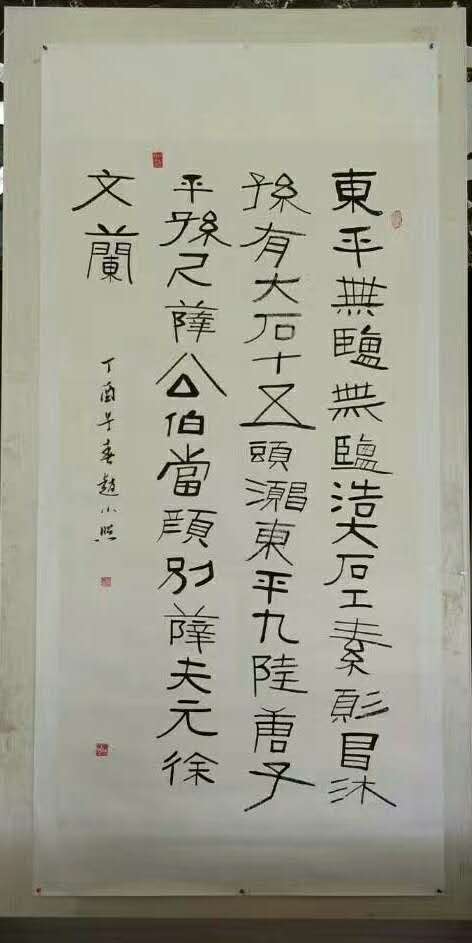 東平無鹽無鹽浩大石工素目沐
孫有大石十五頭東平九陸唐子
平孫尺薛公伯當顔別薛夫元徐
文蘭
丁酉年春趙小